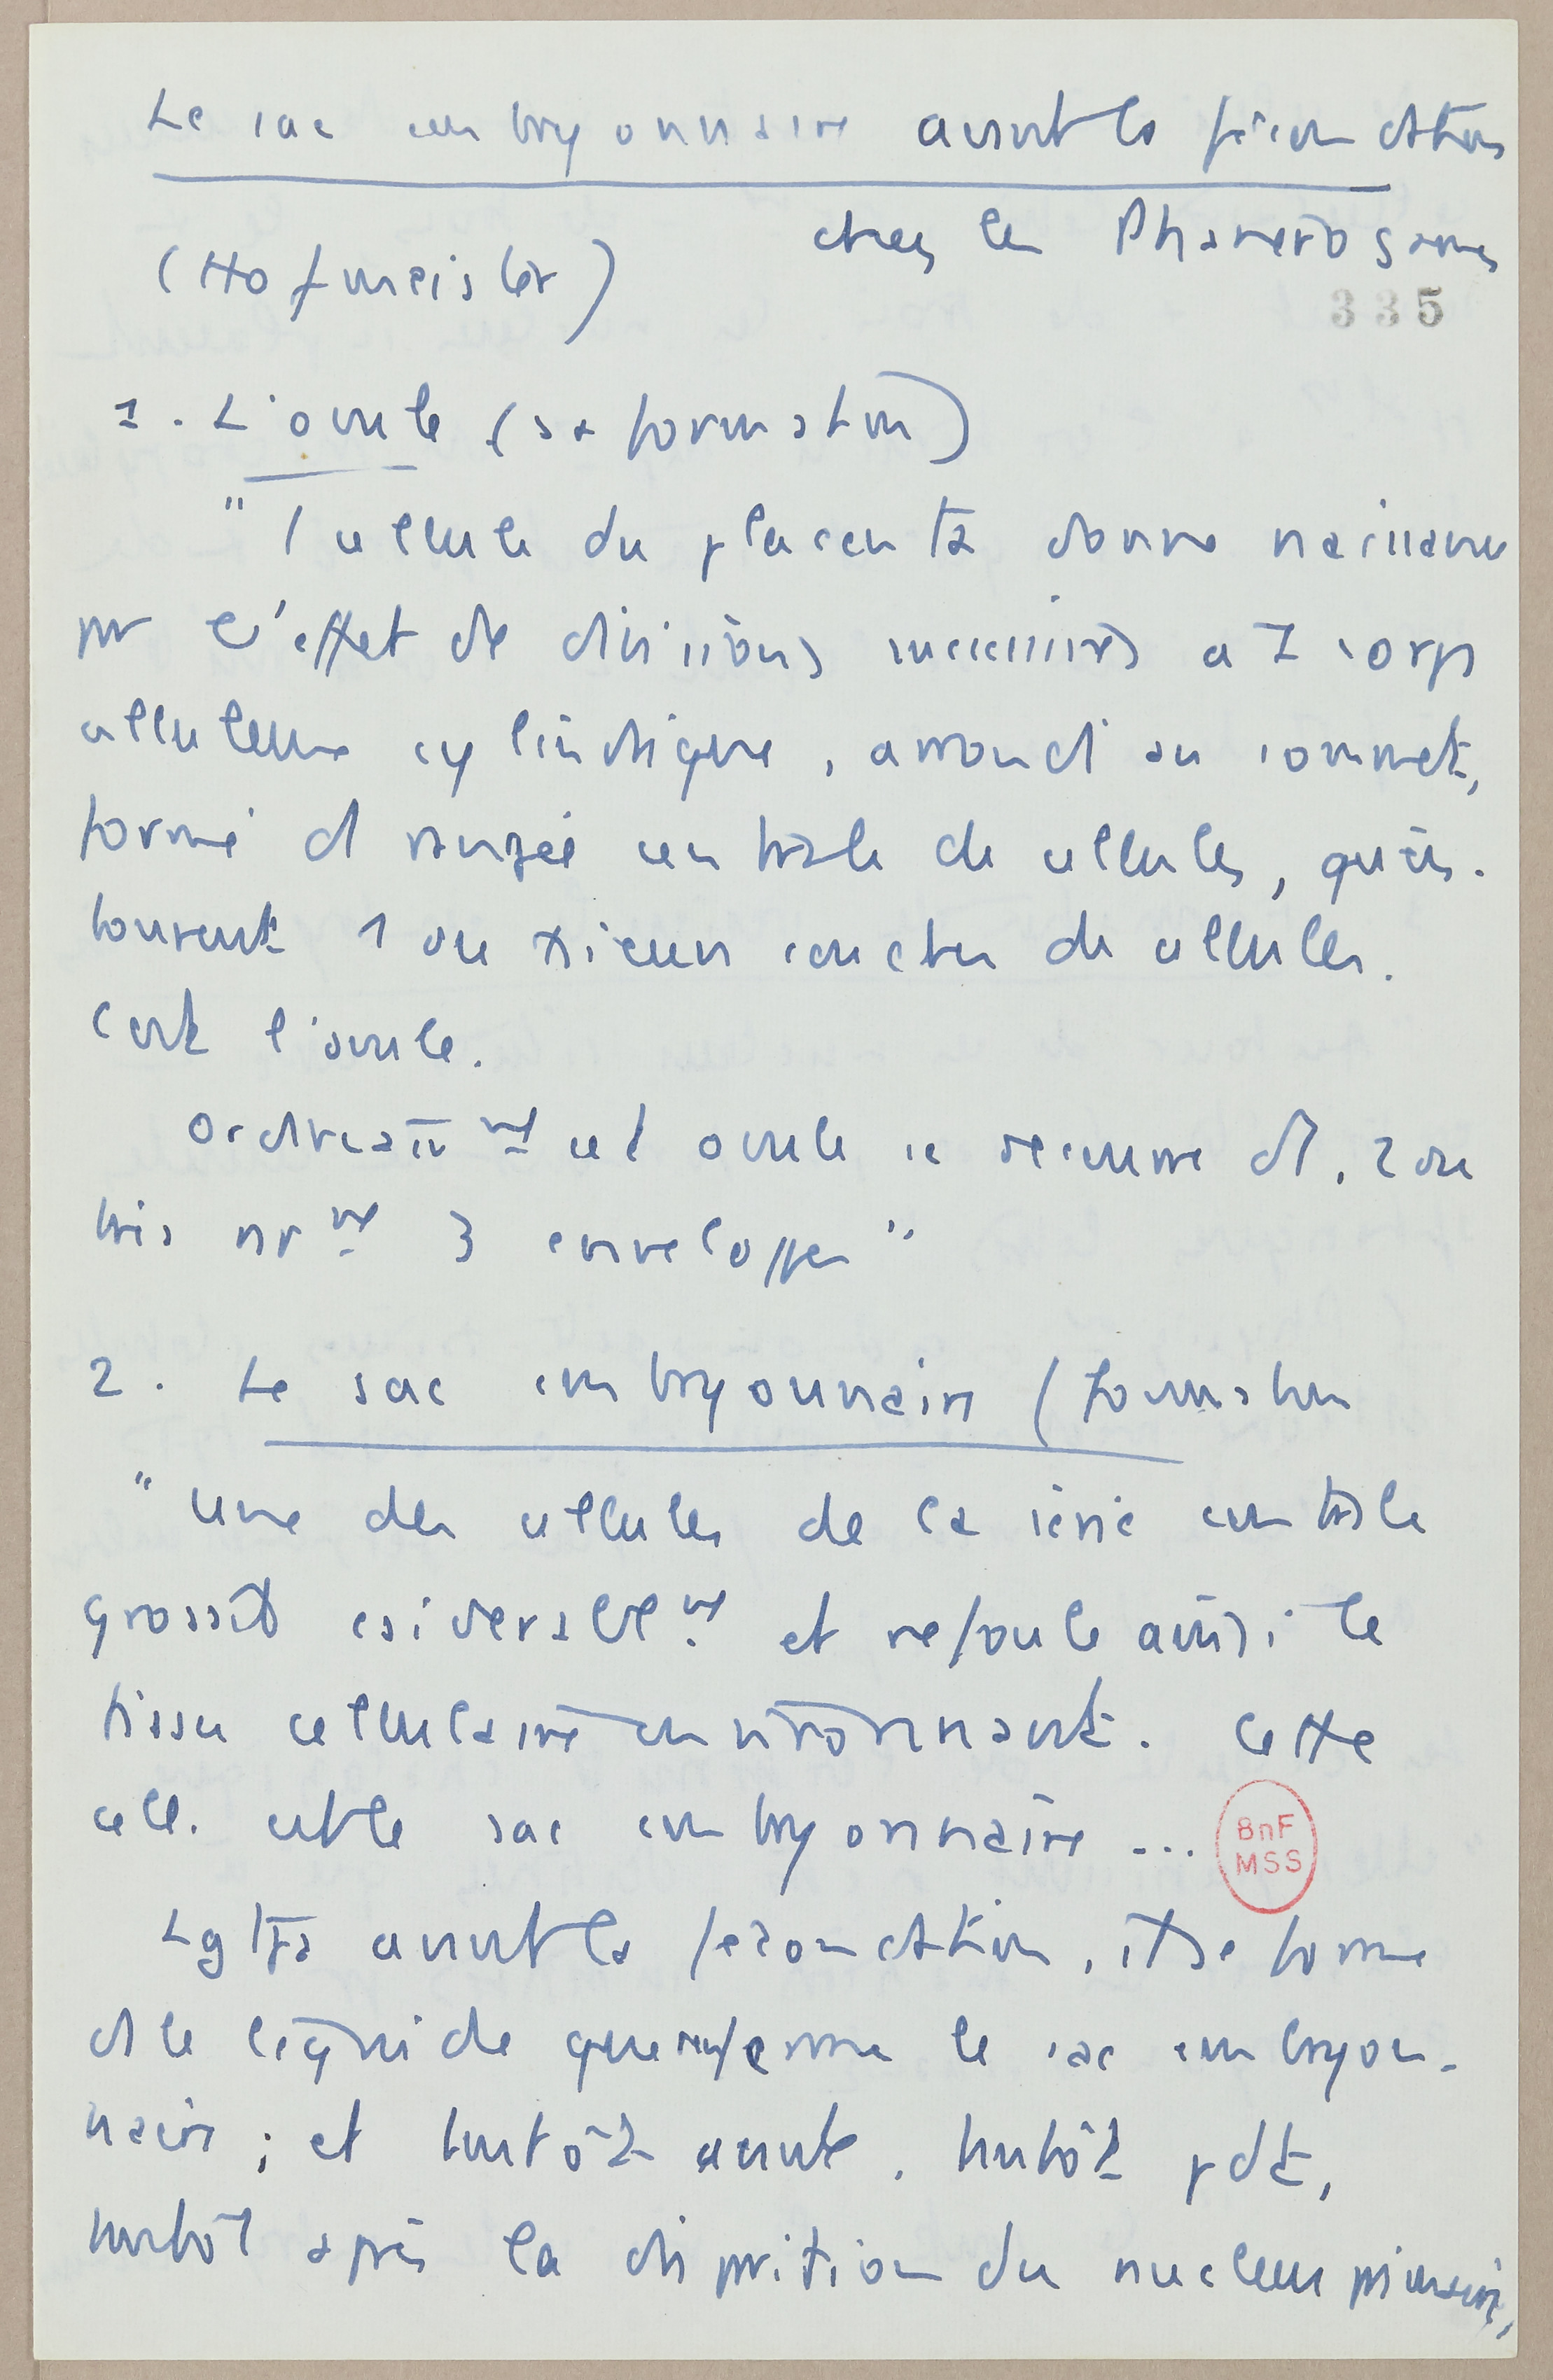 Le sac embryonnaire avant la fécondation
chez les Phanérogames
(Hofmeister)
335
1. L'ovule (sa formation)
"1 cellule du placenta donne naissance
pr l'effet de divisions successives a 1 corps
celluleux cylindrique, arrondi au sommet,
formé d rangée centrale de cellules, qu'en-
tourent 1 ou +sieurs couches de cellules.
C'est l'ovule.
Ordreair mt cet ovule se recouvre d 1, 2 ou
très rr mt 3 enveloppes"
2. Le sac embryonnaire (formation
"une des cellules de la série centrale
grossit csiderablt mt et refoule ainsi le
tissu cellulaire environnant. Cette
cell. est le sac embryonnaire ...
BnF
MSS
Lgtps avant la fécondation, il se forme
d le liquide que renferme le sac embryon-
naire ; et tantôt avant, tantôt pdt,
tantôt après la disparition du nucleus primaire,